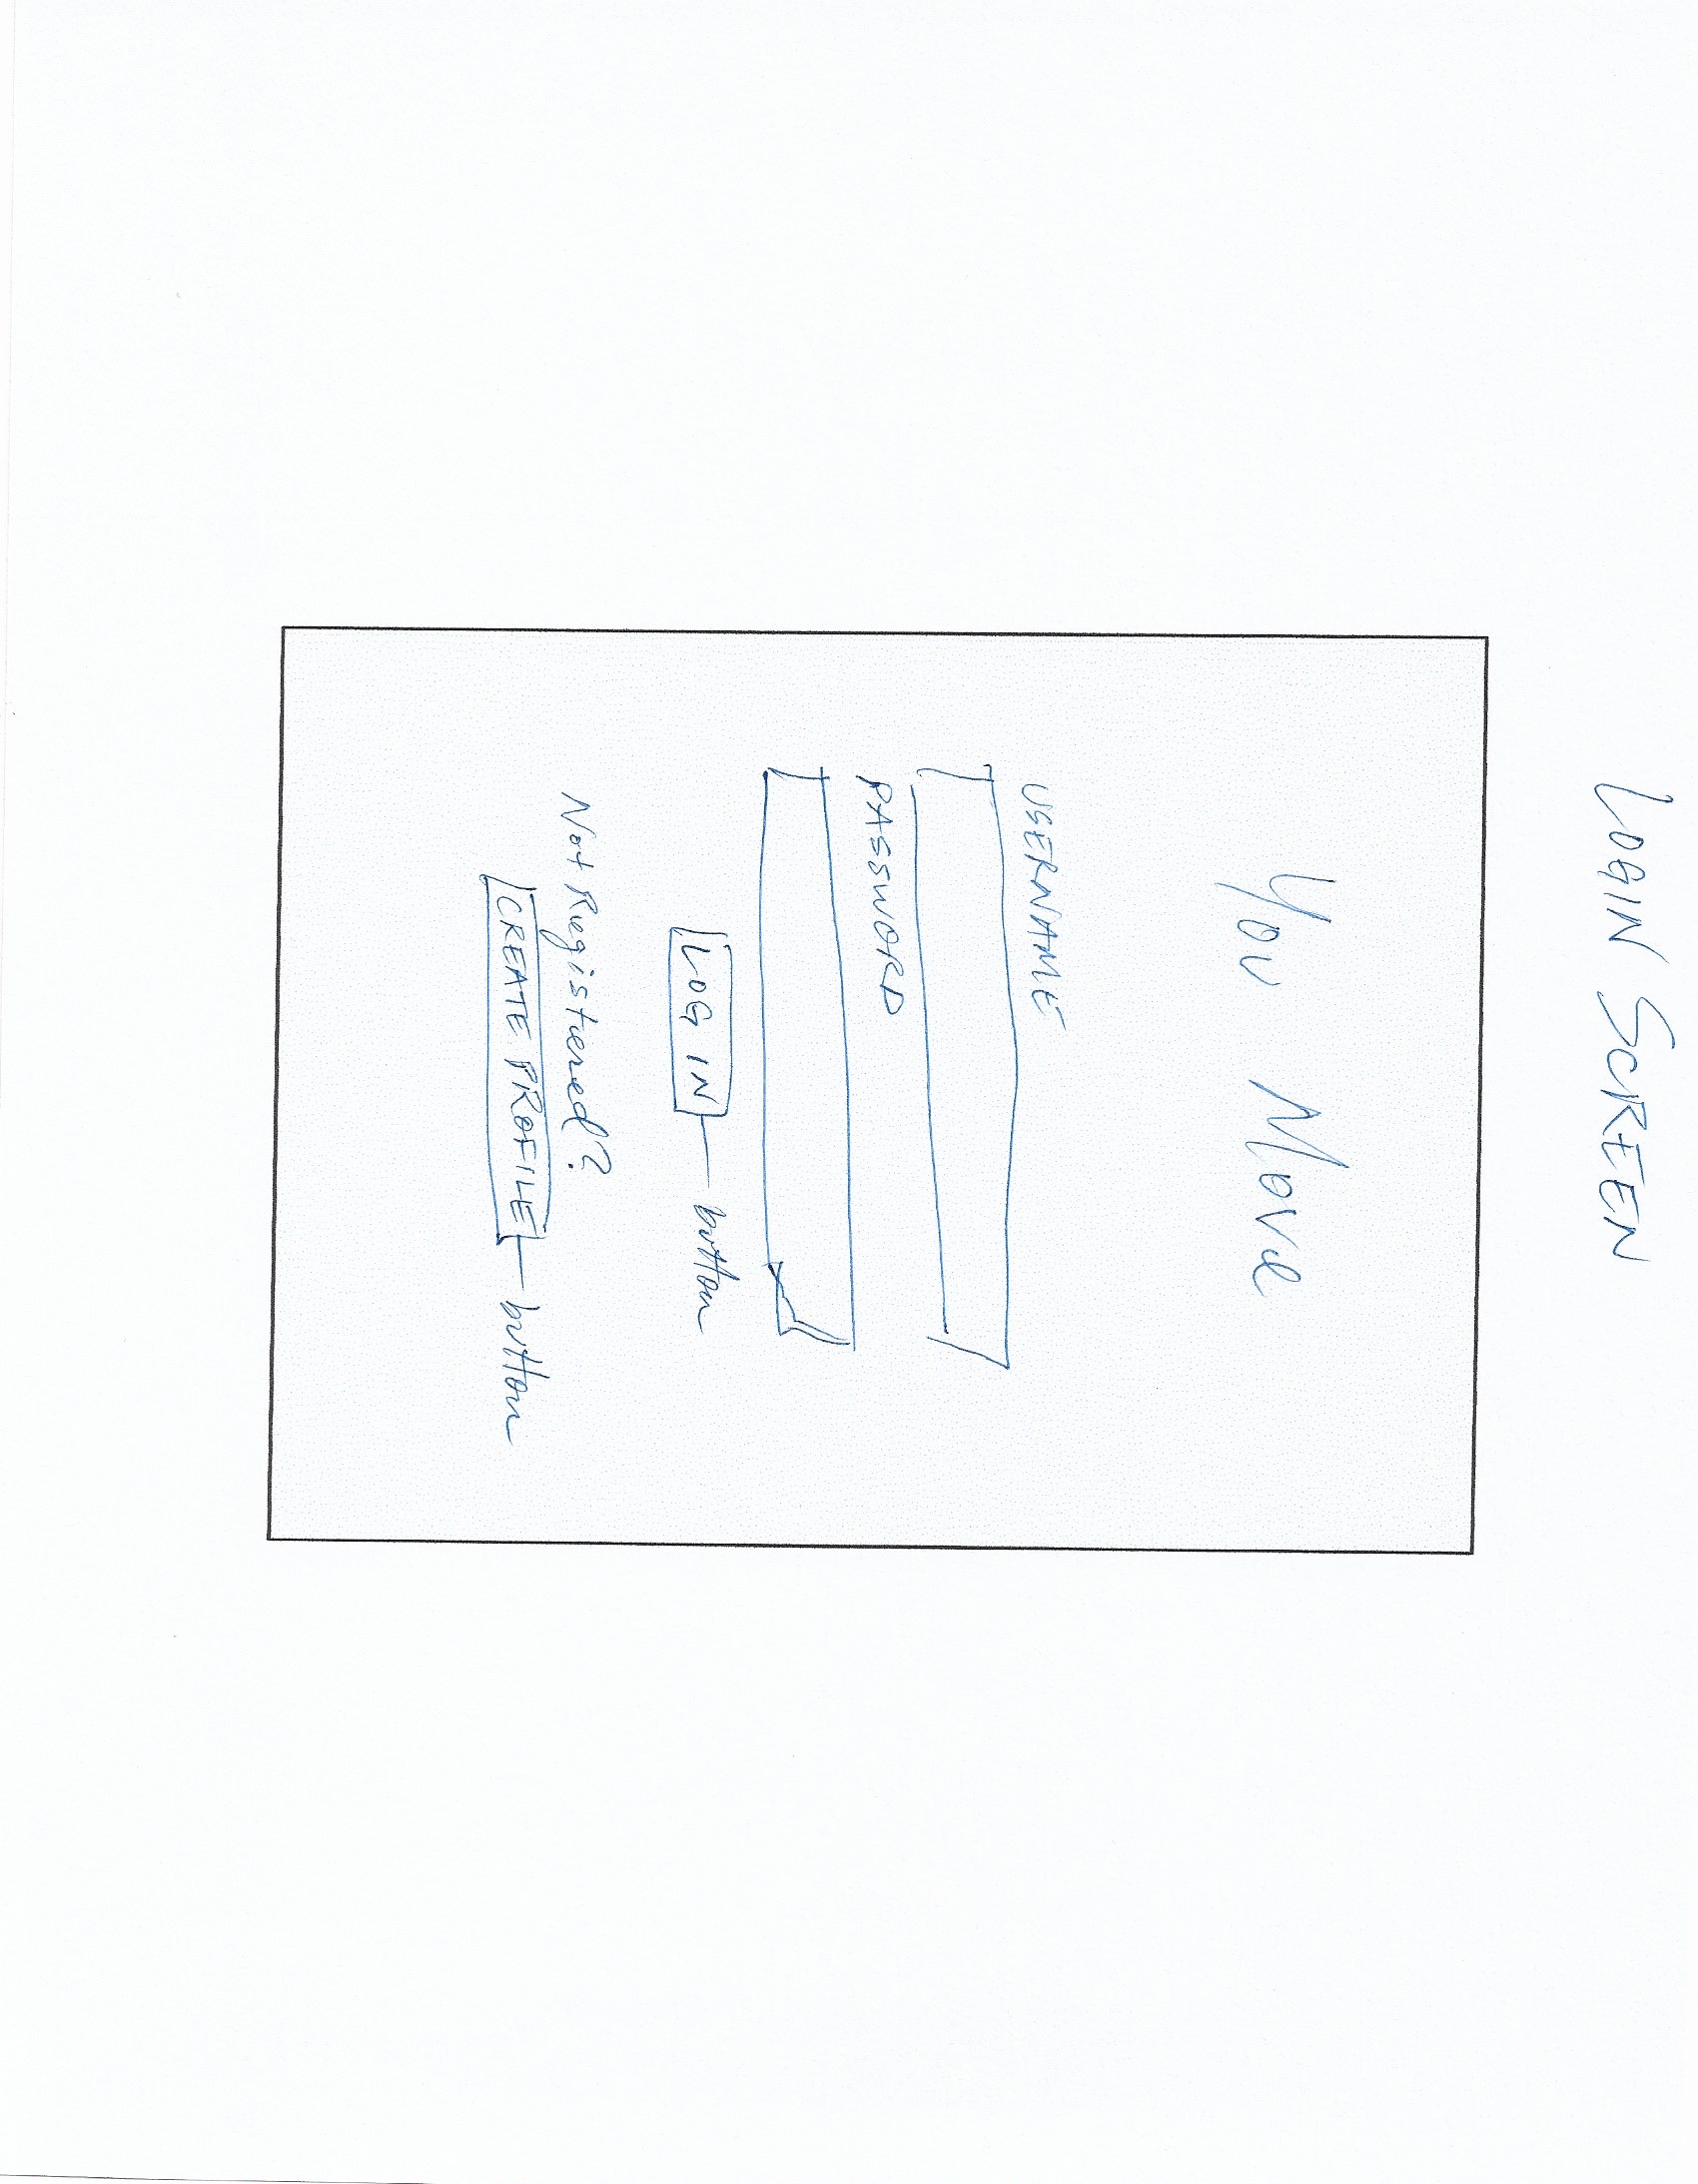 LOGIN SCREEN
You Move
USERNAME
PASSWORD
LOG IN button
Not Registered?
CREATE PROFILE button